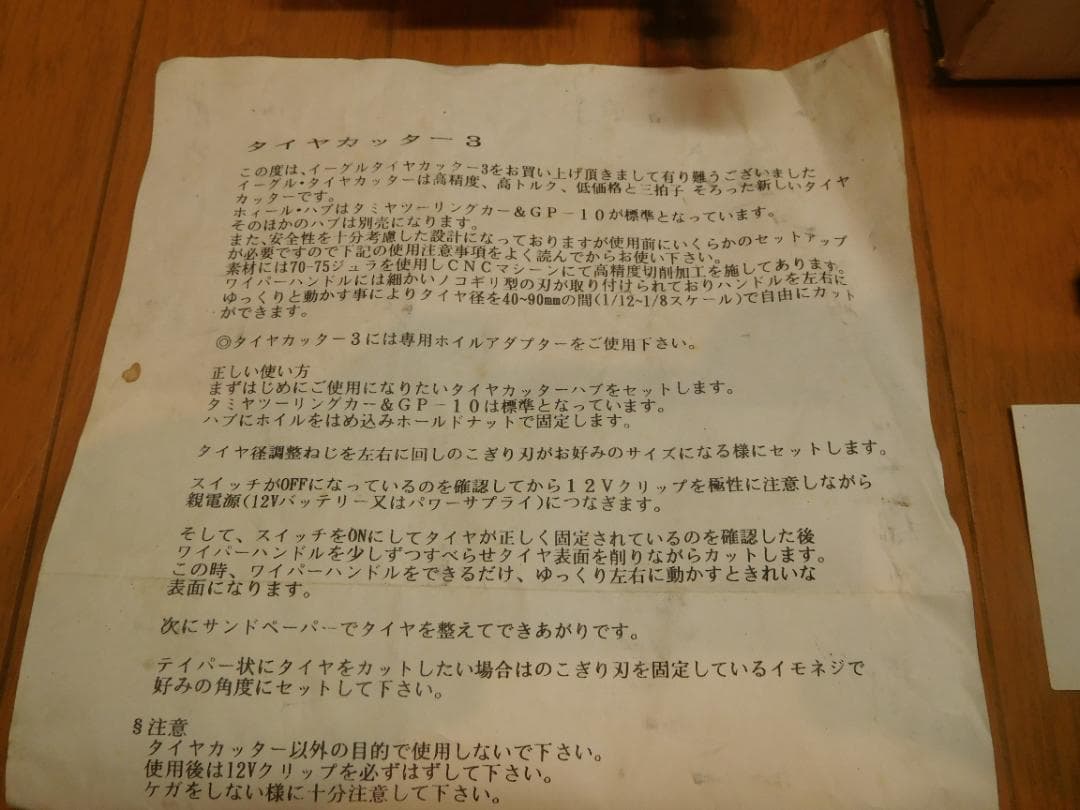 タイヤカッター３
この度は、イーグルタイヤカッター3をお買い上げ頂きまして有り難うございました
イーグル・タイヤカッターは高精度、高トルク、低価格と三拍子 そろった新しいタイヤ
カッターです。
ホィール・ハブはタミヤツーリングカー＆ＧＰ－１０が標準となっています。
そのほかのハブは別売になります。
また、安全性を十分考慮した設計になっておりますが使用前にいくらかのセットアップ
が必要ですので下記の使用注意事項をよく読んでからお使い下さい。
素材には70-75ジュラを使用しＣＮＣマシーンにて高精度切削加工を施してあります。
ワイパーハンドルには細かいノコギリ型の刃が取り付けられておりハンドルを左右に
ゆっくりと動かす事によりタイヤ径を40~90mmの間(1/12~1/8スケール)で自由にカット
ができます。
◎タイヤカッター３には専用ホイルアダプターをご使用下さい。
正しい使い方
まずはじめにご使用になりたいタイヤカッターハブをセットします。
タミヤツーリングカー＆ＧＰ－１０は標準となっています。
ハブにホイルをはめ込みホールドナットで固定します。
タイヤ径調整ねじを左右に回しのこぎり刃がお好みのサイズになる様にセットします。
スイッチがOFFになっているのを確認してから１２Ｖクリップを極性に注意しながら
親電源(12Vバッテリー又はパワーサプライ)につなぎます。
そして、スイッチをONにしてタイヤが正しく固定されているのを確認した後
ワイパーハンドルを少しずつすべらせタイヤ表面を削りながらカットします。
この時、ワイパーハンドルをできるだけ、ゆっくり左右に動かすときれいな
表面になります。
次にサンドペーパーでタイヤを整えてできあがりです。
テイパー状にタイヤをカットしたい場合はのこぎり刃を固定しているイモネジで
好みの角度にセットして下さい。
§注意
タイヤカッター以外の目的で使用しないで下さい。
使用後は12Vクリップを必ずはずして下さい。
ケガをしない様に十分注意して下さい。